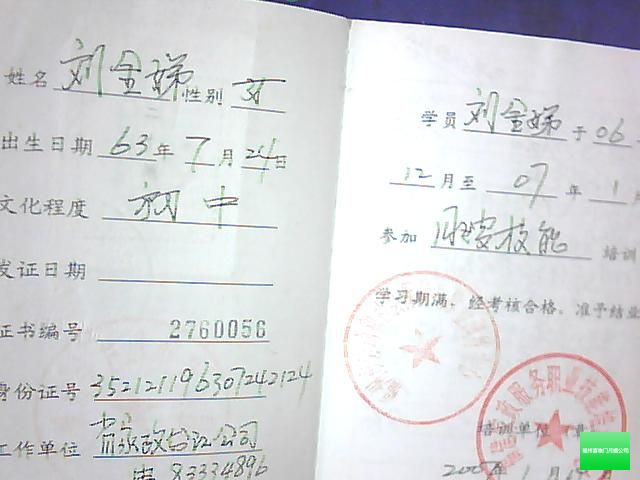 姓名 刘金娣 性别 女
出生日期 63年 7月 24日
文化程度 初中
发证日期
证书编号 2760056
身份证号 352121196307242124
工作单位 家政台江公司
电 83334896
学员 刘金娣 于 06
12月至 07年 1月
参加 居家技能 培训
学习期满、经考核合格，准予结业
培训单位（章）
1月
政服务职业技能
福州喜徕门月嫂公司